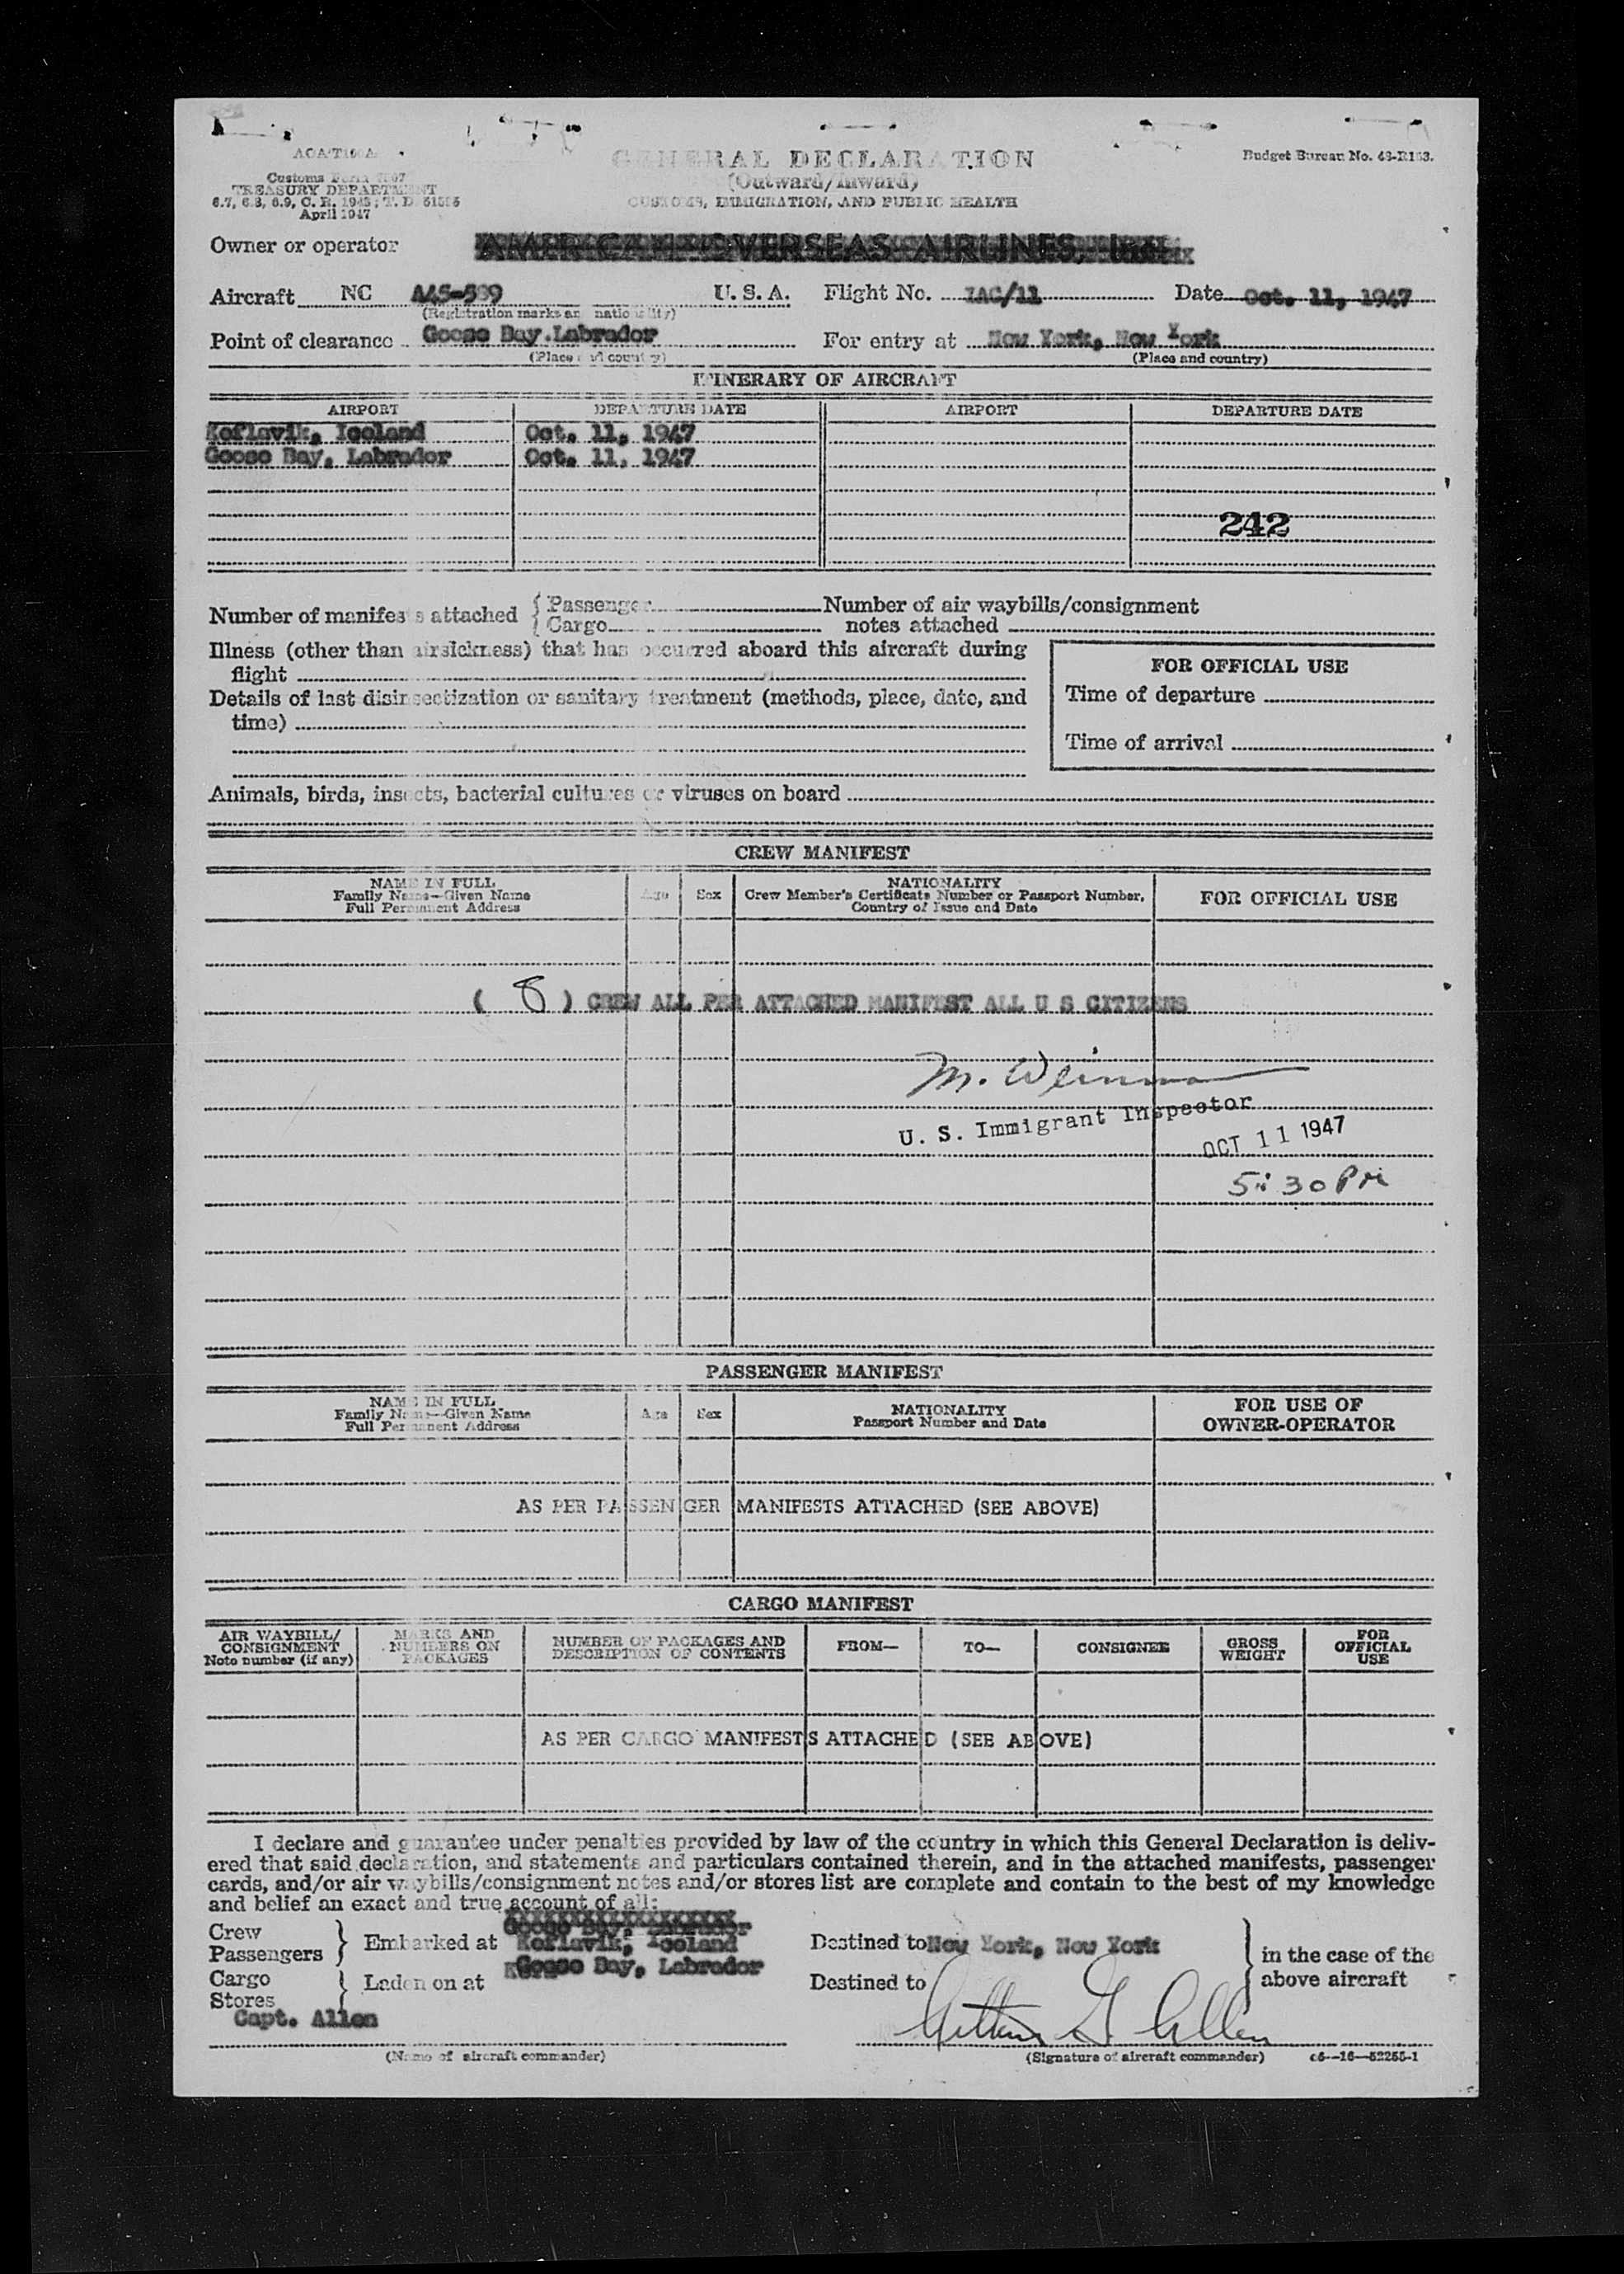 GENERAL DECLARATION
(Outward/Inward)
CUSTOMS, IMMIGRATION, AND PUBLIC HEALTH
Budget Bureau No. 48-R163.
TREASURY DEPARTMENT
April 1947
Owner or operator AMERICAN OVERSEAS AIRLINES,
Aircraft NC A45-599 U. S. A. Flight No. IAC/11 Date Oct. 11, 1947
(Registration marks and nationality)
Point of clearance Goose Bay.Labrador For entry at New York, New York
(Place and country) (Place and country)
ITINERARY OF AIRCRAFT
AIRPORT DEPARTURE DATE AIRPORT DEPARTURE DATE
Keflavik, Iceland Oct. 11, 1947
Goose Bay, Labrador Oct. 11, 1947
242
Number of manifests attached { Passenger Number of air waybills/consignment
Cargo notes attached
Illness (other than airsickness) that has occurred aboard this aircraft during
flight
FOR OFFICIAL USE
Details of last disinsectization or sanitary treatment (methods, place, date, and
time)
Time of departure
Time of arrival
Animals, birds, insects, bacterial cultures or viruses on board
CREW MANIFEST
NAME IN FULL
Family Name—Given Name
Full Permanent Address
Age Sex
NATIONALITY
Crew Member's Certificate Number or Passport Number,
Country of Issue and Date
FOR OFFICIAL USE
( 8 ) CREW ALL PER ATTACHED MANIFEST ALL U S CITIZENS
M.
U. S. Immigrant Inspector
OCT 11 1947
5:30 PM
PASSENGER MANIFEST
NAME IN FULL
Family Name—Given Name
Full Permanent Address
Age Sex
NATIONALITY
Passport Number and Date
FOR USE OF
OWNER-OPERATOR
AS PER PASSENGER MANIFESTS ATTACHED (SEE ABOVE)
CARGO MANIFEST
AIR WAYBILL/
CONSIGNMENT
Note number (if any)
MARKS AND
NUMBERS ON
PACKAGES
NUMBER OF PACKAGES AND
DESCRIPTION OF CONTENTS
FROM—
TO—
CONSIGNEE
GROSS
WEIGHT
FOR
OFFICIAL
USE
AS PER CARGO MANIFESTS ATTACHED (SEE ABOVE)
I declare and guarantee under penalties provided by law of the country in which this General Declaration is deliv-
ered that said declaration, and statements and particulars contained therein, and in the attached manifests, passenger
cards, and/or air waybills/consignment notes and/or stores list are complete and contain to the best of my knowledge
and belief an exact and true account of all:
Goose Bay, Labrador
Crew
Passengers } Embarked at Keflavik, Iceland Destined to New York, New York } in the case of the
Cargo
Stores } Laden on at Goose Bay, Labrador Destined to above aircraft
Capt. Allen
G. Allen
(Name of aircraft commander) (Signature of aircraft commander)